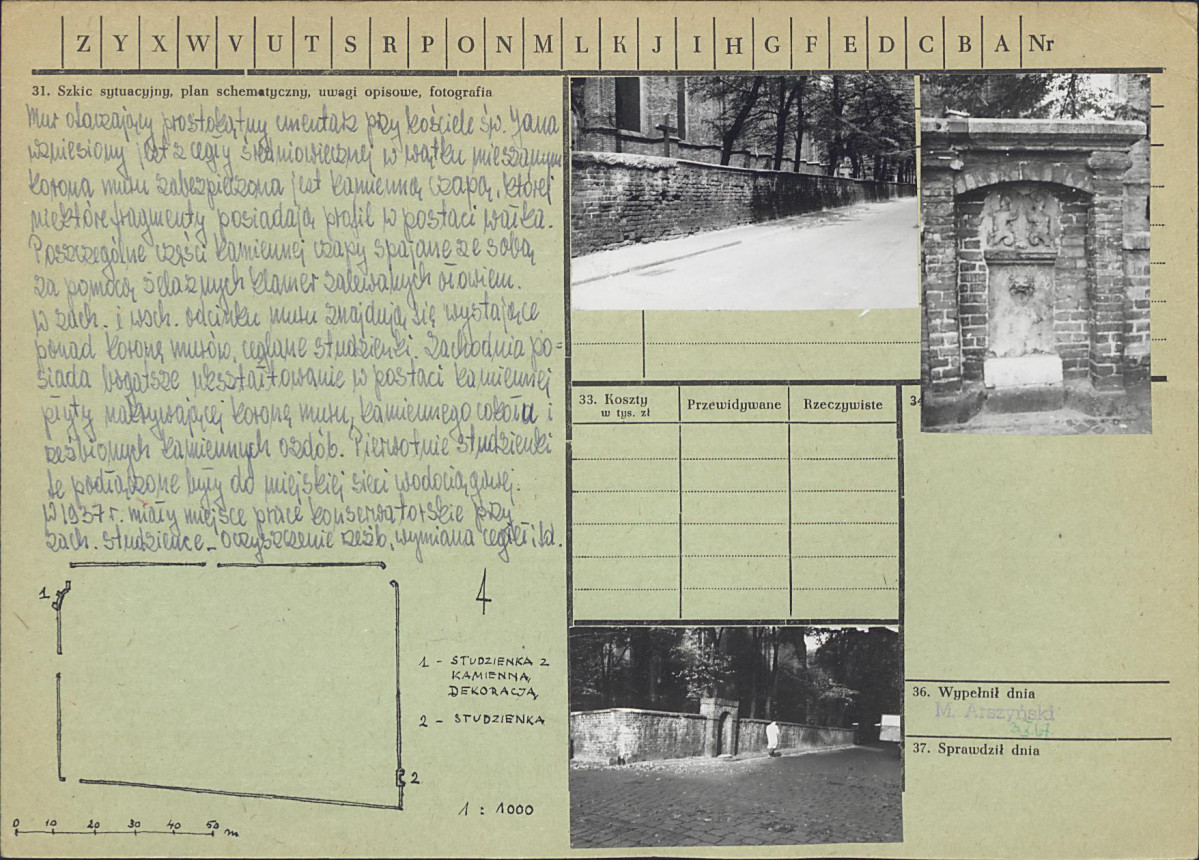 Z Y X W V U T S R P O N M L K J I H G F E D C B A Nr
31. Szkic sytuacyjny, plan schematyczny, uwagi opisowe, fotografia
Mur otaczający prostokątny cmentarz przy kościele św. Jana
wzniesiony jest z cegły średniowiecznej w wątku mieszanym
Korona muru zabezpieczona jest kamienną czapą, której
niektóre fragmenty posiadają profil w postaci wałka.
Poszczególne części kamiennej czapy spajane ze sobą
za pomocą żelaznych klamer zalewanych ołowiem.
W zach. i wsch. odcinku muru znajdują się wystające
ponad koronę murów, ceglane studzienki. Zachodnia po=
siada bogatsze ukształtowanie w postaci kamiennej
płyty nakrywającej koronę muru, kamiennego cokołu i
rzeźbionych kamiennych ozdób. Pierwotnie studzienki
te podłączone były do miejskiej sieci wodociągowej.
W 1937 r. miały miejsce prace konserwatorskie przy
zach. studzience – oczyszczenie rzeźb, wymiana cegieł i td.
1
1 - STUDZIENKA Z
KAMIENNĄ
DEKORACJĄ
2 - STUDZIENKA
2
1 : 1000
0 10 20 30 40 50 m
33. Koszty
w tys. zł
Przewidywane
Rzeczywiste
34
36. Wypełnił dnia
M. Arszyński
37. Sprawdził dnia